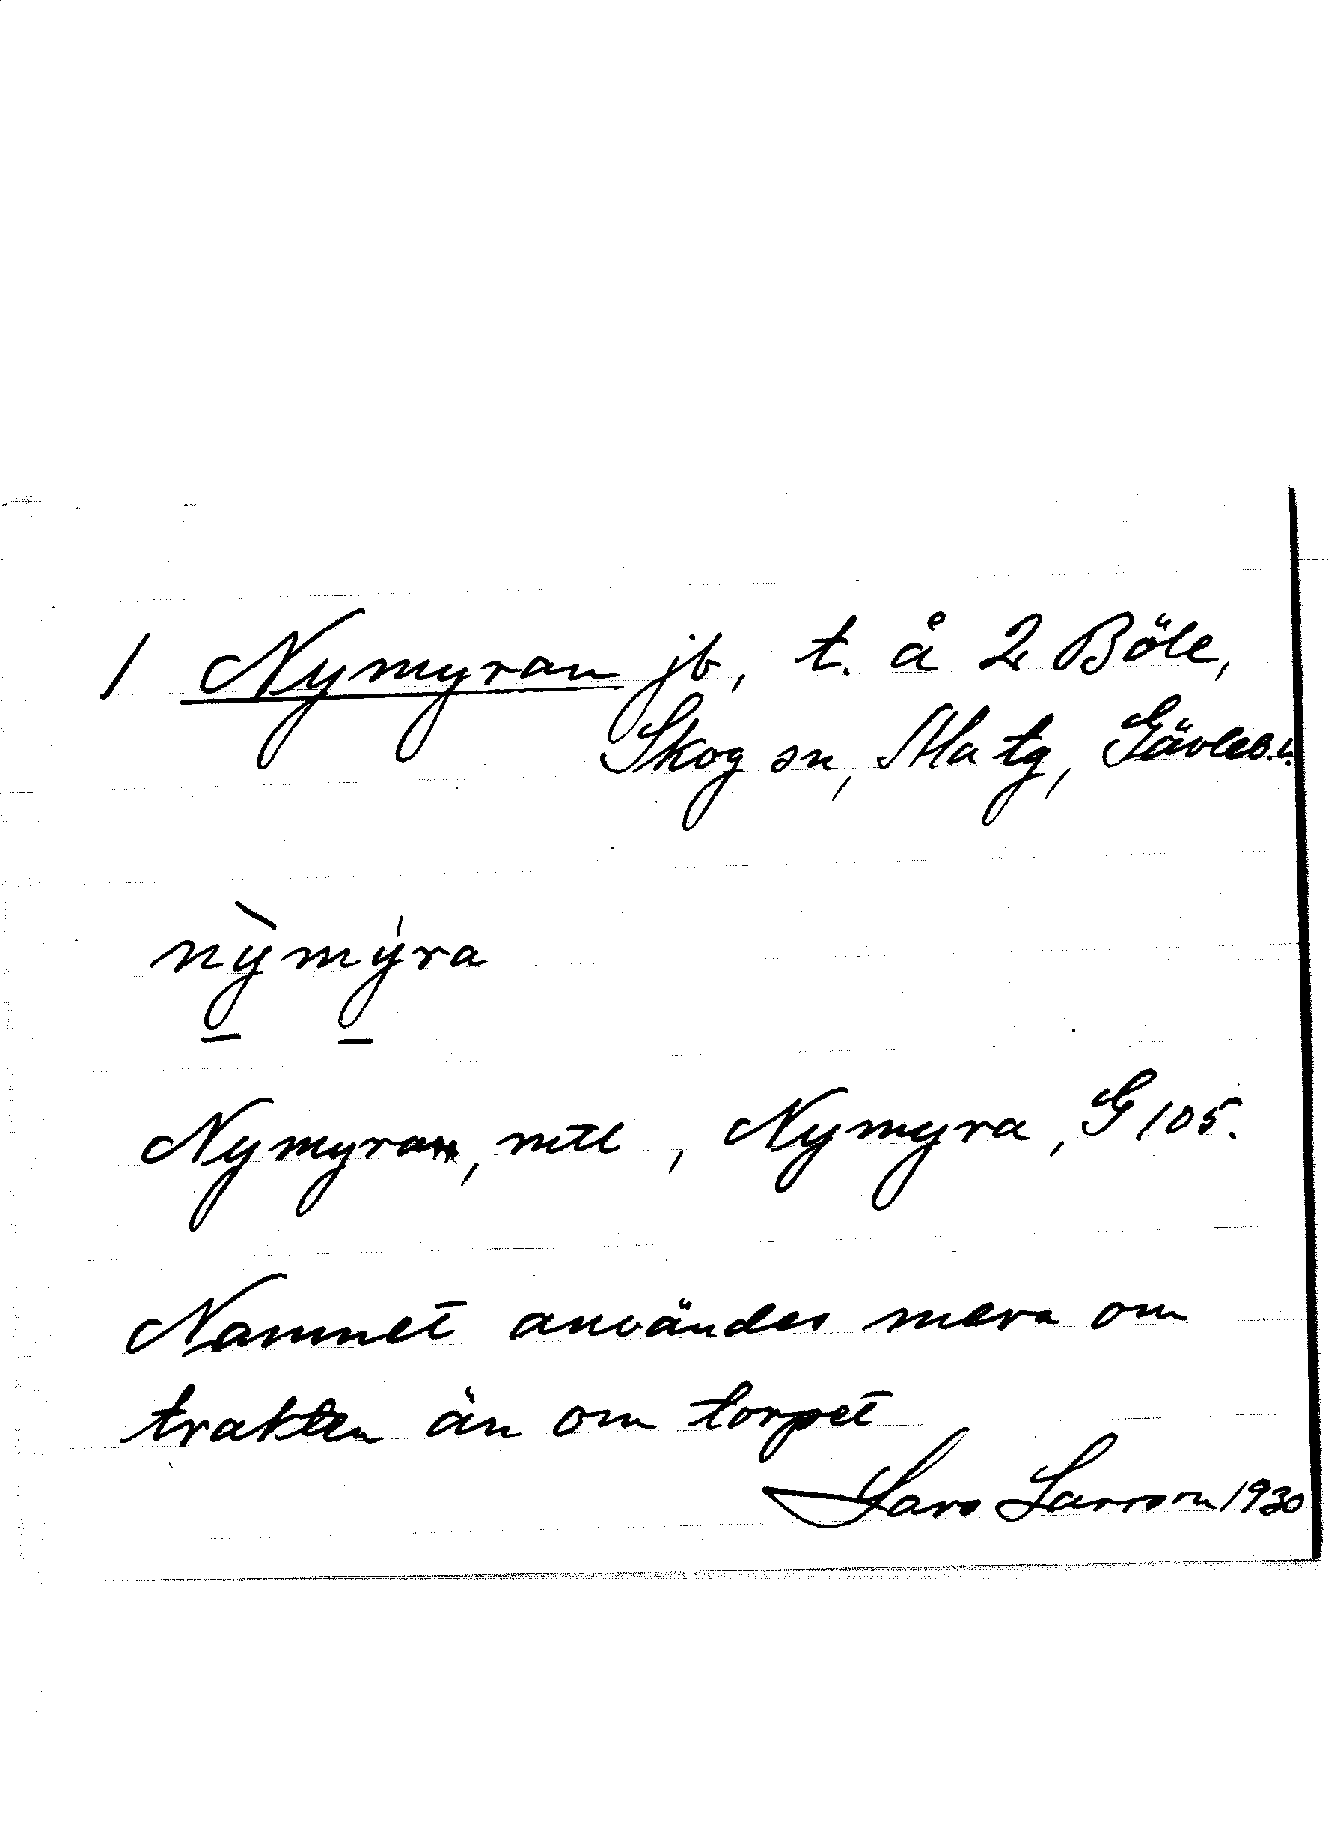 1 Nymyran jb, t. å 2 Böle,
Skog sn, Ala tg, Gävleb. l.
nỳmýra
Nymyran, mtl, Nymyra, G 105.
Namnet användes mera om
trakten än om torpet
Lars Larsson 1930